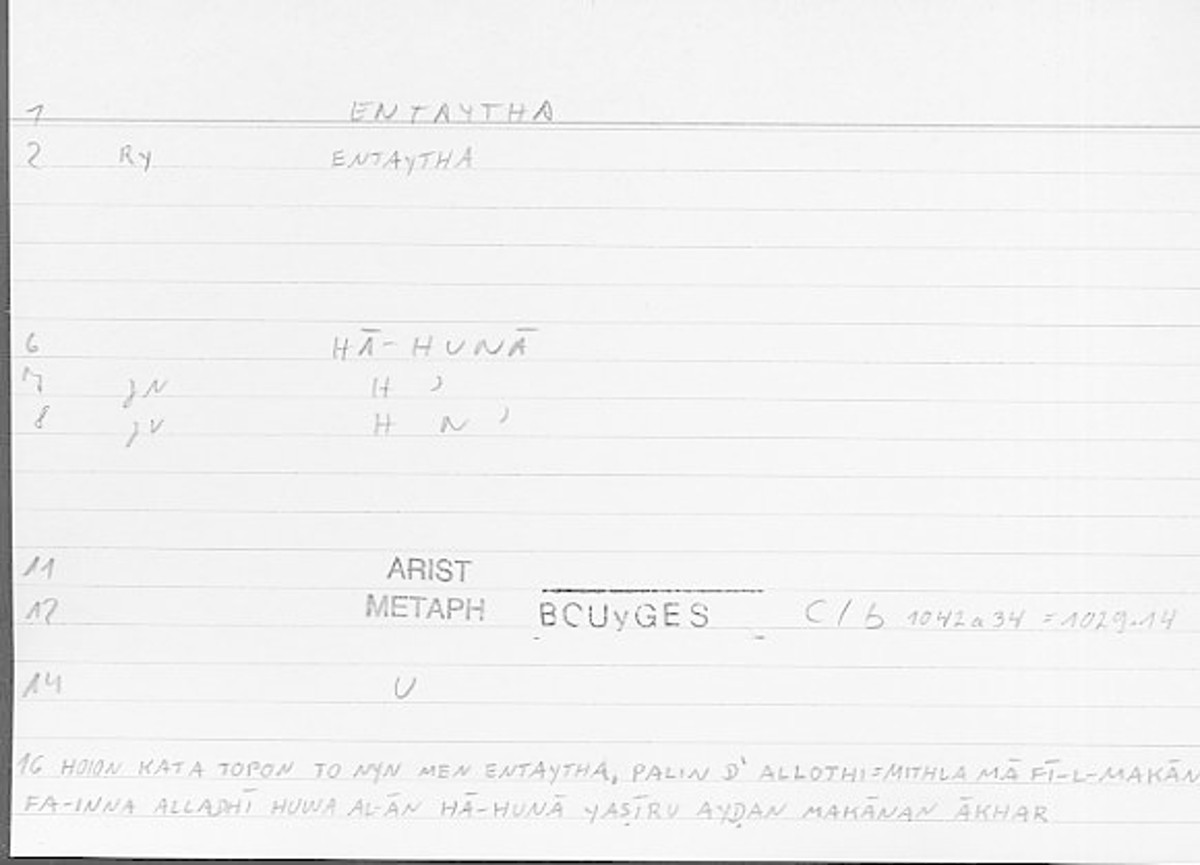 1 ENTAYTHA
2 Ry ENTAYTHA
6 HĀ-HUNĀ
7 JN H ʾ
8 JV H N ʾ
11 ARIST
12 METAPH BOUYGES C/b 1042a34 = 1029.14
14 U
16 HOION KATA TOPON TO NYN MEN ENTAYTHA, PALIN D' ALLOTHI=MITHLA MĀ FĪ-L-MAKĀN
FA-INNA ALLADHĪ HUWA AL-ĀN HĀ-HUNĀ YAṢĪRU AYḌAN MAKĀNAN ĀKHAR